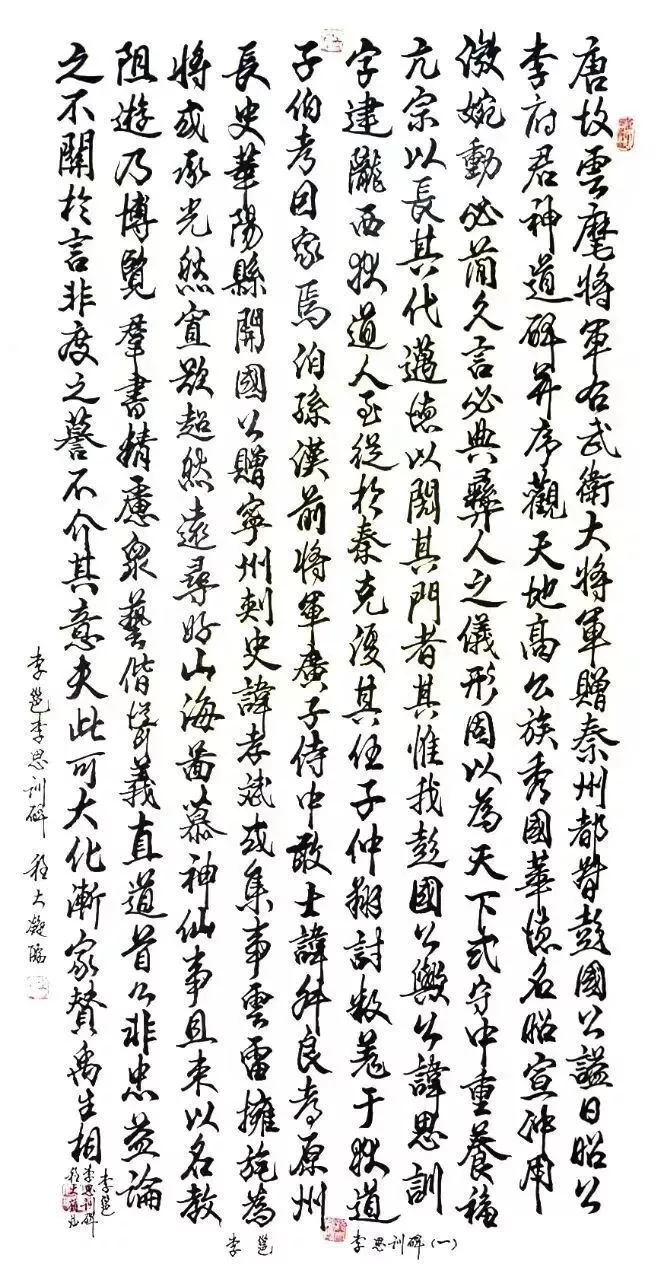 唐故雲麾將軍右武衛大將軍贈秦州都督彭國公謚曰昭公
李府君神道碑并序觀天地高公族秀國華德名昭宣沖用
微婉動必簡久言必典彝人之儀形固以為天下式守中重養福
亢宗以長其代邁德以閎其門者其惟我彭國公歟公諱思訓
字建隴西狄道人至從於秦克復其任子仲翔討叛羌于狄道
子伯考因家焉伯孫漢前將軍廣子侍中敢士諱叔良考原州
長史華陽縣開國公贈寧州刺史諱孝斌或集事雲雷擁旄為
將或承光然宣款超然遠尋好山海圖慕神仙事且束以名教
阻遊乃博覽群書精慮眾藝偕背義直道首公非忠益論
之不關於言非度之謩不介其意夫此可大化漸家贊禹生相
李邕李思訓碑 程大凝臨
李邕
李思訓碑
李邕 李思訓碑(一)